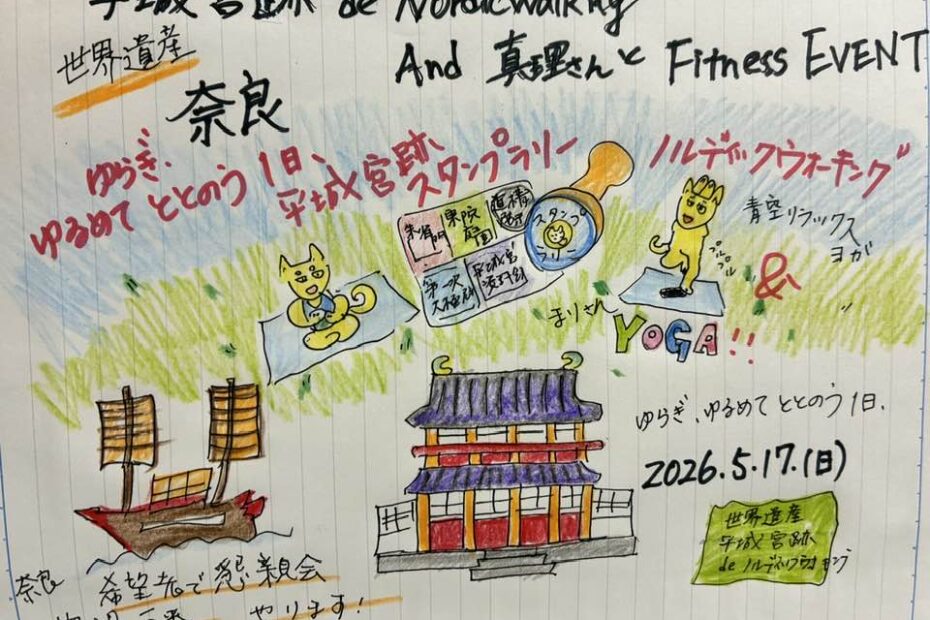 平城宮跡 de Nordicwalking
世界遺産
And 真理さんと Fitness EVENT
奈良
ゆらぎ、
ゆるめて ととのう 1日、
平城宮跡
スタンプラリー
ノルディックウォーキング
朱雀門
東院
庭園
スタンプ
ラリー
第一次
青空リラックス
ヨガ
プルプル
&
まりさん
YOGA!!
ゆらぎ、ゆるめて ととのう 1日.
2026.5.17.(日)
世界遺産
平城宮跡
de ノルディックウォーキング
奈良
希望者で懇親会
やります!